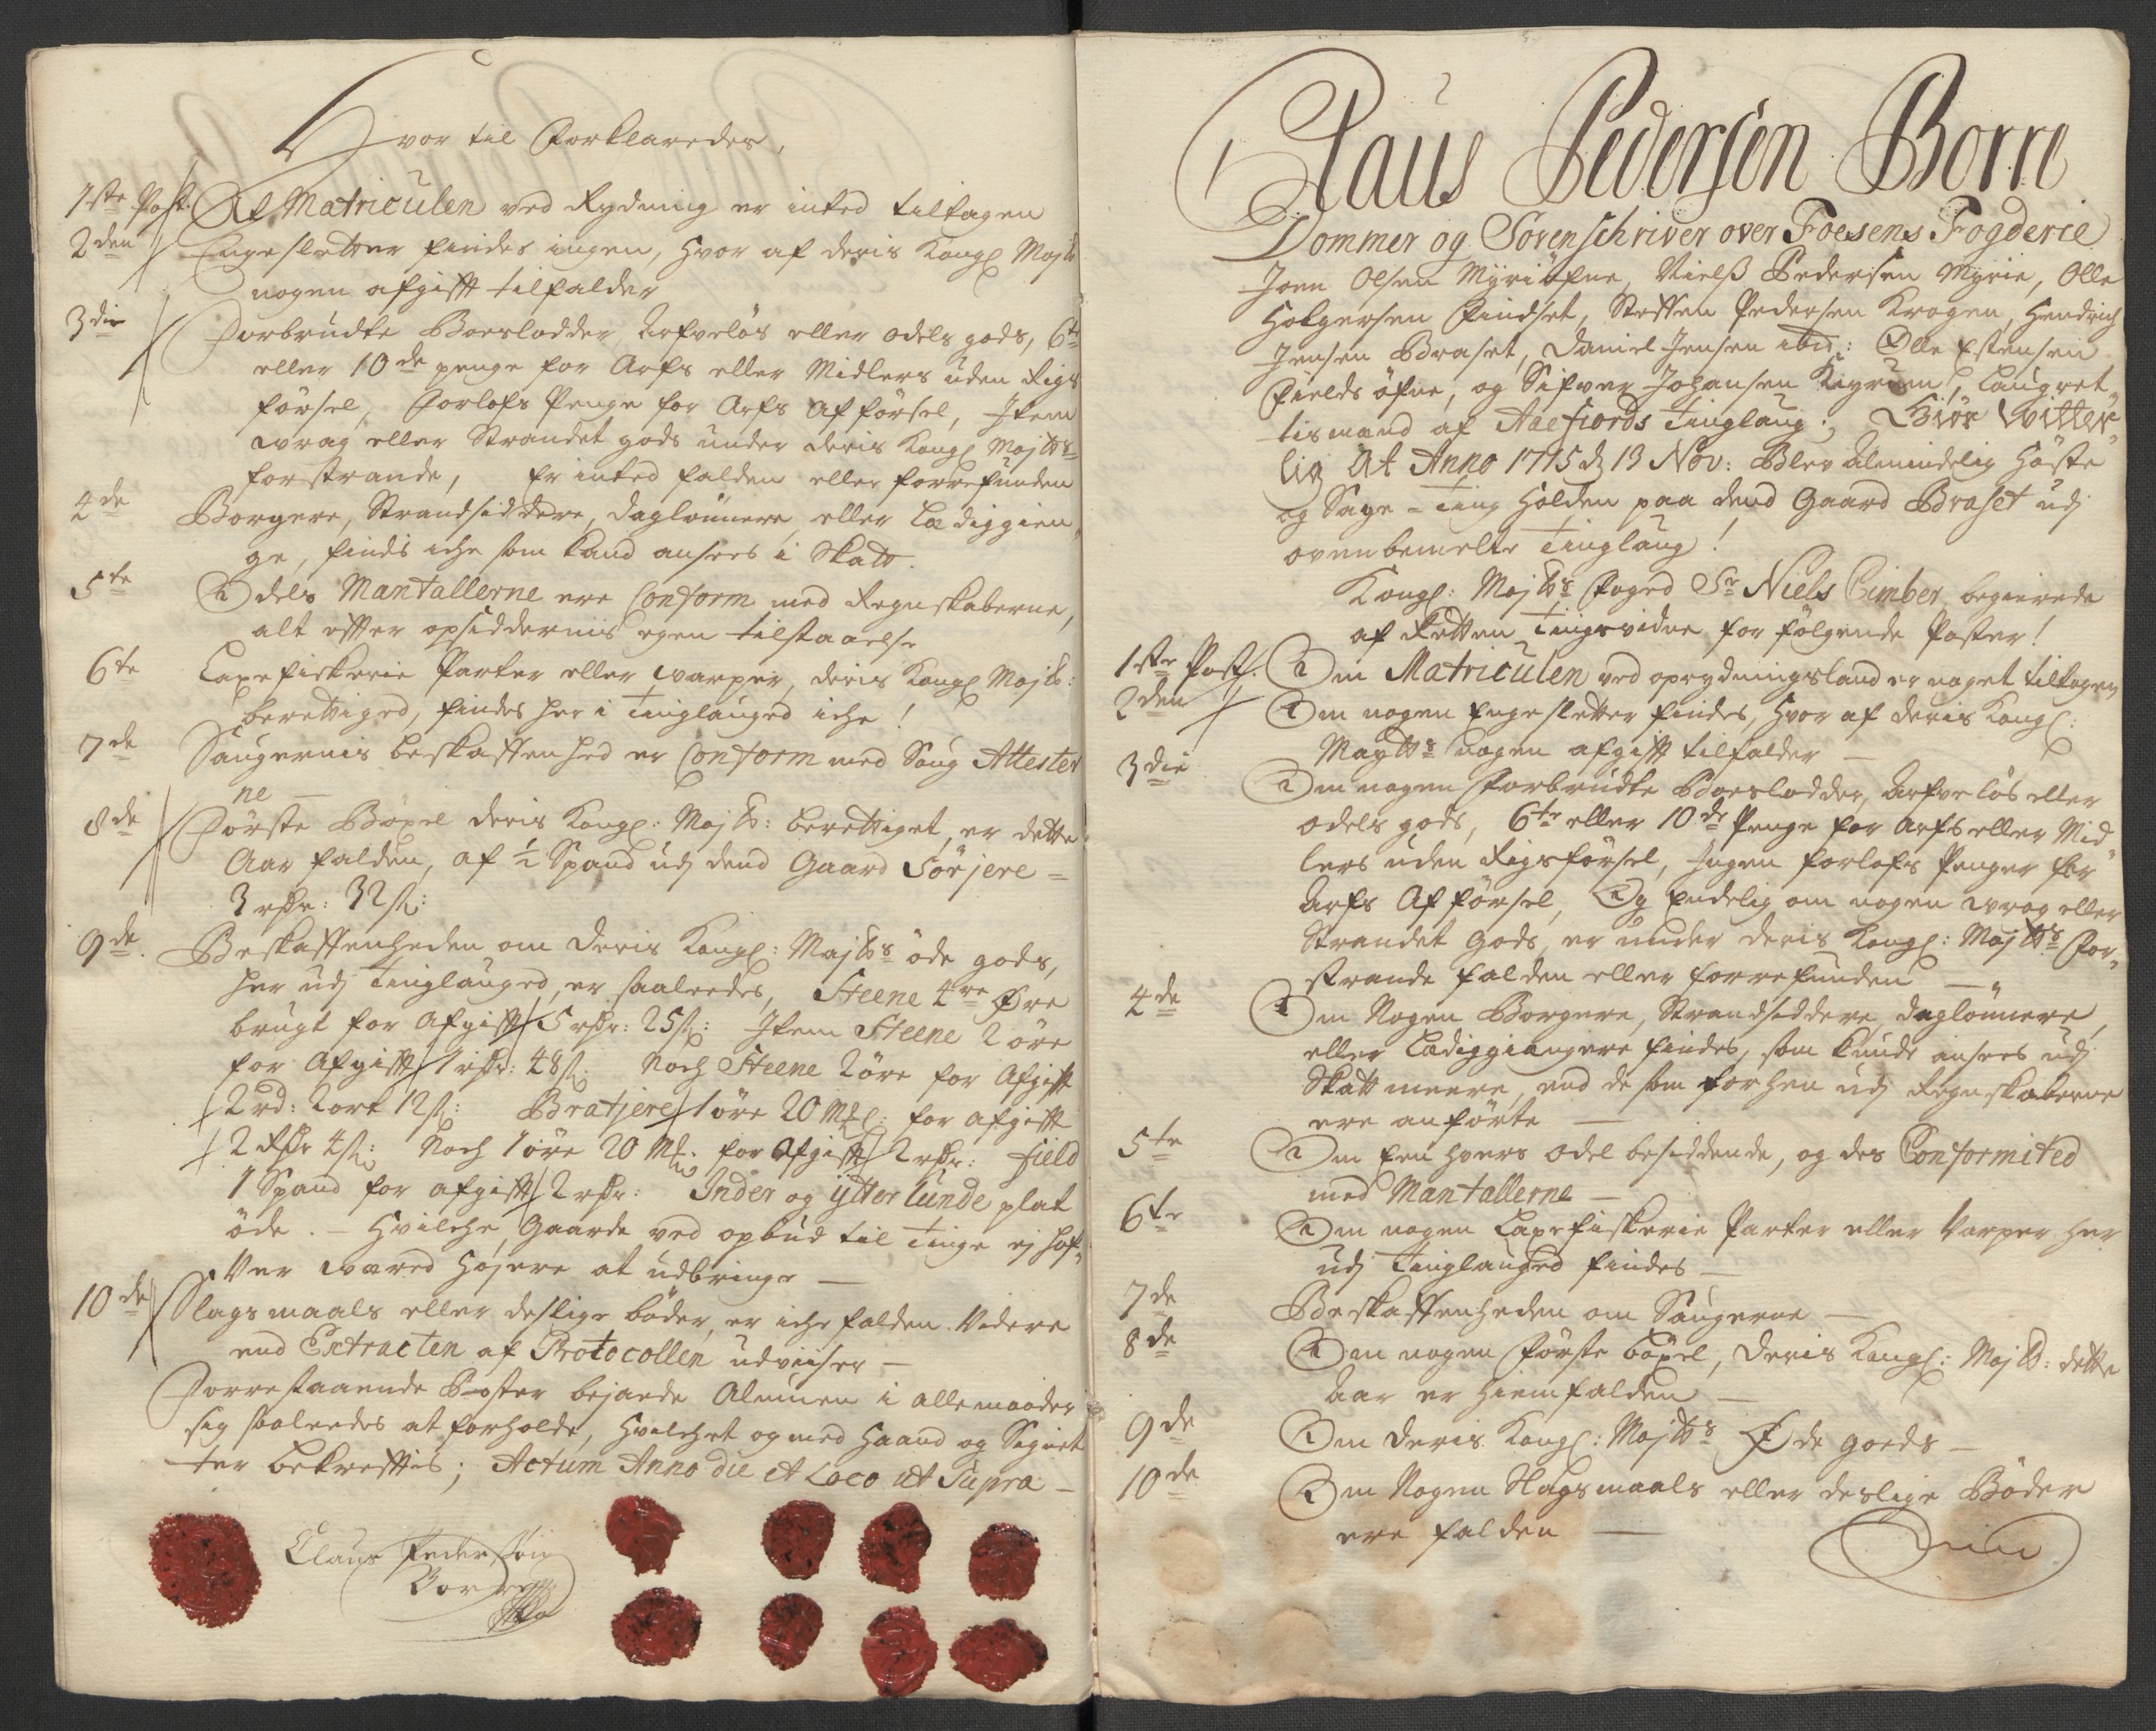 Hvor til Forklaredes,
1ste Post. Af Matriculen ved Rydning er inted tiltagen
2den Engesletter findes ingen, hvor af deris Kongl Majts
nogen afgifft tilfalder
3die Forbrudte Boeslodder, Arfveløs eller odels gods, 6te
eller 10de penge for Arfs eller Midlers uden Rigs
førsel, Forlofs Penge for Arfs afførsel, Item
wrag eller Strandet gods under deris Kongl Majtts
forstrande, er inted falden eller forrefunden
4de Borgere, Strandsiddere, daglønnere, eller Lædiggien„
ge, finds iche som kand ansees i Skatt.
5te Odels Mantallerne ere Conform med Regnskaberne,
alt efter opsiddernis egen tilstaaelse
6te Laxefiskerie Parter eller warper, deris Kongl Majts:
berettiged, findes her i Tinglauged iche!
7de Saugernis beskaffenhed er Conform med Saug Attester
ne —
8de Første Bøxel deris Kongl: Majts: berettiget, er dette
Aar falden, af ½ Spand udj dend Gaard Sørjere =
3 rdr: 32 s:
9de. Beskaffenheden om deris Kongl: Majts øde gods,
her udj Tinglauged, er saaleedes, Steene 4re Øre
brugt for afgifft 5 rdr: 25 s: Item Steene 2 øre
for afgifft 1 rdr: 48 s: Noch Steene 2 øre for afgifft
2 rd: 2 ort 12 s: Bratjere 1 øre 20 Mkl: for afgifft
2 Rdr 4 s: Noch 1 øre 20 Mkl: for afgifft 2 rdr: Field
1 Spand for afgifft 2 rdr: Inder og ytter lunde plat
øde. — Hvilche Gaarde ved opbud til Tinge ej haf„
ver wæred højere at udbringe —
10de Slagsmaals eller deslige bøder, er iche falden Videre
end Extracten af Protocollen udviiser —
Forrestaaende Poster bejaede Almuen i alle maader
sig saaleedes at forholde, hvilchet og med Haand og Signet
ter bekrefftis; Actum Anno die et Loco ut Supra —
Claus Pedersøn
Borre
Claus Pedersøn Borre
Dommer og Sorenschriver over Foesens Fogderie
Joen Olsen Myriøfne, Nielß Pedersen Myrie, Olle
Holgersen Findset, Steffen Pedersen Krogen, Hendrich
Jensen Braset, Daniel Jensen ibid: Olle Estensen
Fieldsøfne, og Sifver Johansen Kiyruen, Laugret„
tismænd af Aaefiords Tinglaug; Giør Witter„
lig At Anno 1715 d 13 Nov: Blev almindelig Høste
og Sage = Ting holden paa dend Gaard Braset udj
ovenbemelte Tinglaug!
Kongl: Majts Foged Sr Niels Cimber begierede
af Retten Tingsvidne for følgende Poster!
1ste Post. Om Matriculen ved oprydningsland er noget tiltagen
2den Om nogen Engesletter findes, hvor af deris Kongl:
Maytts nogen afgifft tilfalder —
3die Om nogen Forbrudte Boeslodder, Arfveløs eller
odels gods, 6te eller 10de Penge for Arfs eller Mid„
lers uden Rigsførsel, Ingen forlofs Penger for
Arfs Afførsel, Og Endelig om nogen wrag eller
Strandet gods er under deris Kongl: Majtts For„
strande falden eller forrefunden —
4de Om Nogen Borgere, Strandsiddere, daglønnere,
eller Lædiggiængere findes, som kunde ansees udj
Skatt meere, end de som forhen udj Regnskaberne
ere anførte —
5te Om Een hvers Odel besiddende, og des Conformited
med Mantallerne —
6te Om nogen Laxefiskerie Parter eller Varper her
udj Tinglauged findes —
7de Beskaffenheden om Saugerne —
8de Om nogen Første bøxel, deris Kongl: Majts: dette
Aar er hiemfalden —
9de Om deris Kongl: Majtts Øde goeds —
10de Om Nogen Slagsmaals eller deslige Bøder
ere falden —